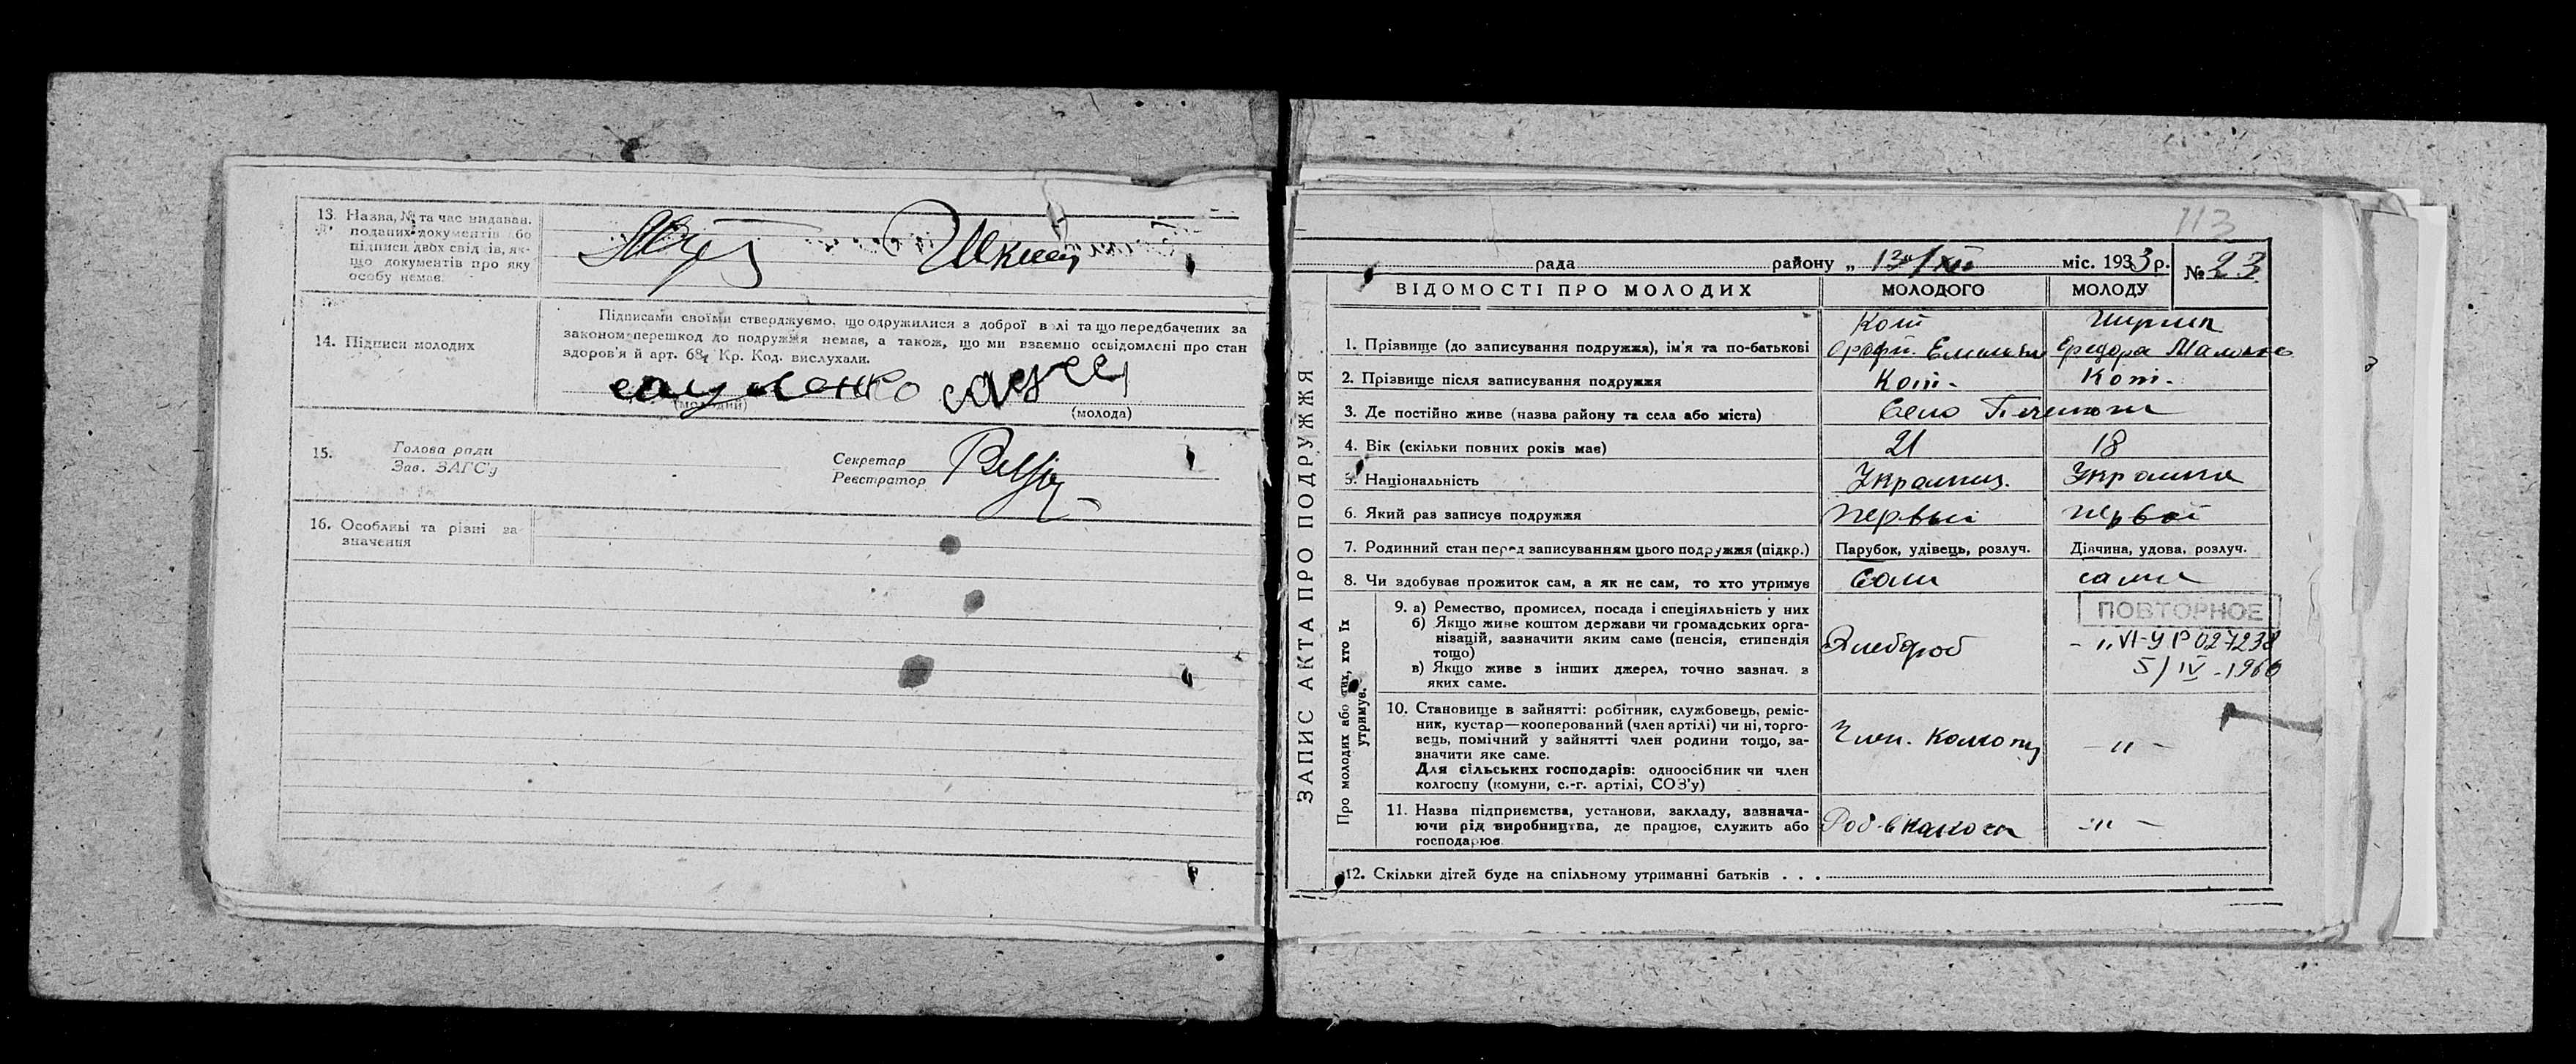 13. Назва, № та час видаван.
поданих документів або
підписи двох свідків, як-
що документів про яку
особу немає.
14. Підписи молодих
Підписами своїми стверджуємо, що одружилися з доброї волі та що передбачених за
законом перешкод до подружжя немає, а також, що ми взаємно освідомлені про стан
здоров'я й арт. 68, Кр. Код. вислухали.
(молодий)
(молода)
15.
Голова ради
Зав. ЗАГС'у
Секретар
Реєстратор
16. Особливі та різні за
значення
113
рада району „ 13 "/XII міс. 1933 р.
№ 23
ЗАПИС АКТА ПРО ПОДРУЖЖЯ
ВІДОМОСТІ ПРО МОЛОДИХ МОЛОДОГО МОЛОДУ
Кот
1. Прізвище (до записування подружжя), ім'я та по-батькові
2. Прізвище після записування подружжя Кот- Кот-
3. Де постійно живе (назва району та села або міста) Село
4. Вік (скільки повних років має) 21 18
5. Національність Украинц. Украинка
6. Який раз записує подружжя первый первой
7. Родинний стан перед записуванням цього подружжя (підкр.) Парубок, удівець, розлуч. Дівчина, удова, розлуч.
8. Чи здобуває прожиток сам, а як не сам, то хто утримує Сам сама
Про молодих або тих, хто їх
утримує.
9. а) Ремество, промисел, посада і спеціяльність у них
б) Якщо живе коштом держави чи громадських орга-
нізацій, зазначити яким саме (пенсія, стипендія
тощо)
в) Якщо живе з інших джерел, точно зазнач. з
яких саме.
Хлебороб
ПОВТОРНОЕ
- „ VI-УР 027238
5/IV-1960
10. Становище в зайнятті: робітник, службовець, реміс-
ник, кустар—кооперований (член артілі) чи ні, торго-
вець, помічний у зайнятті член родини тощо, за-
значити яке саме.
Для сільських господарів: одноосібник чи член
колгоспу (комуни, с.-г. артілі, СОЗ'у)
Член. -„-
11. Назва підприємства, установи, закладу, зазнача-
ючи рід виробництва, де працює, служить або
господарює
Роб. в -„-
12. Скільки дітей буде на спільному утриманні батьків . . .